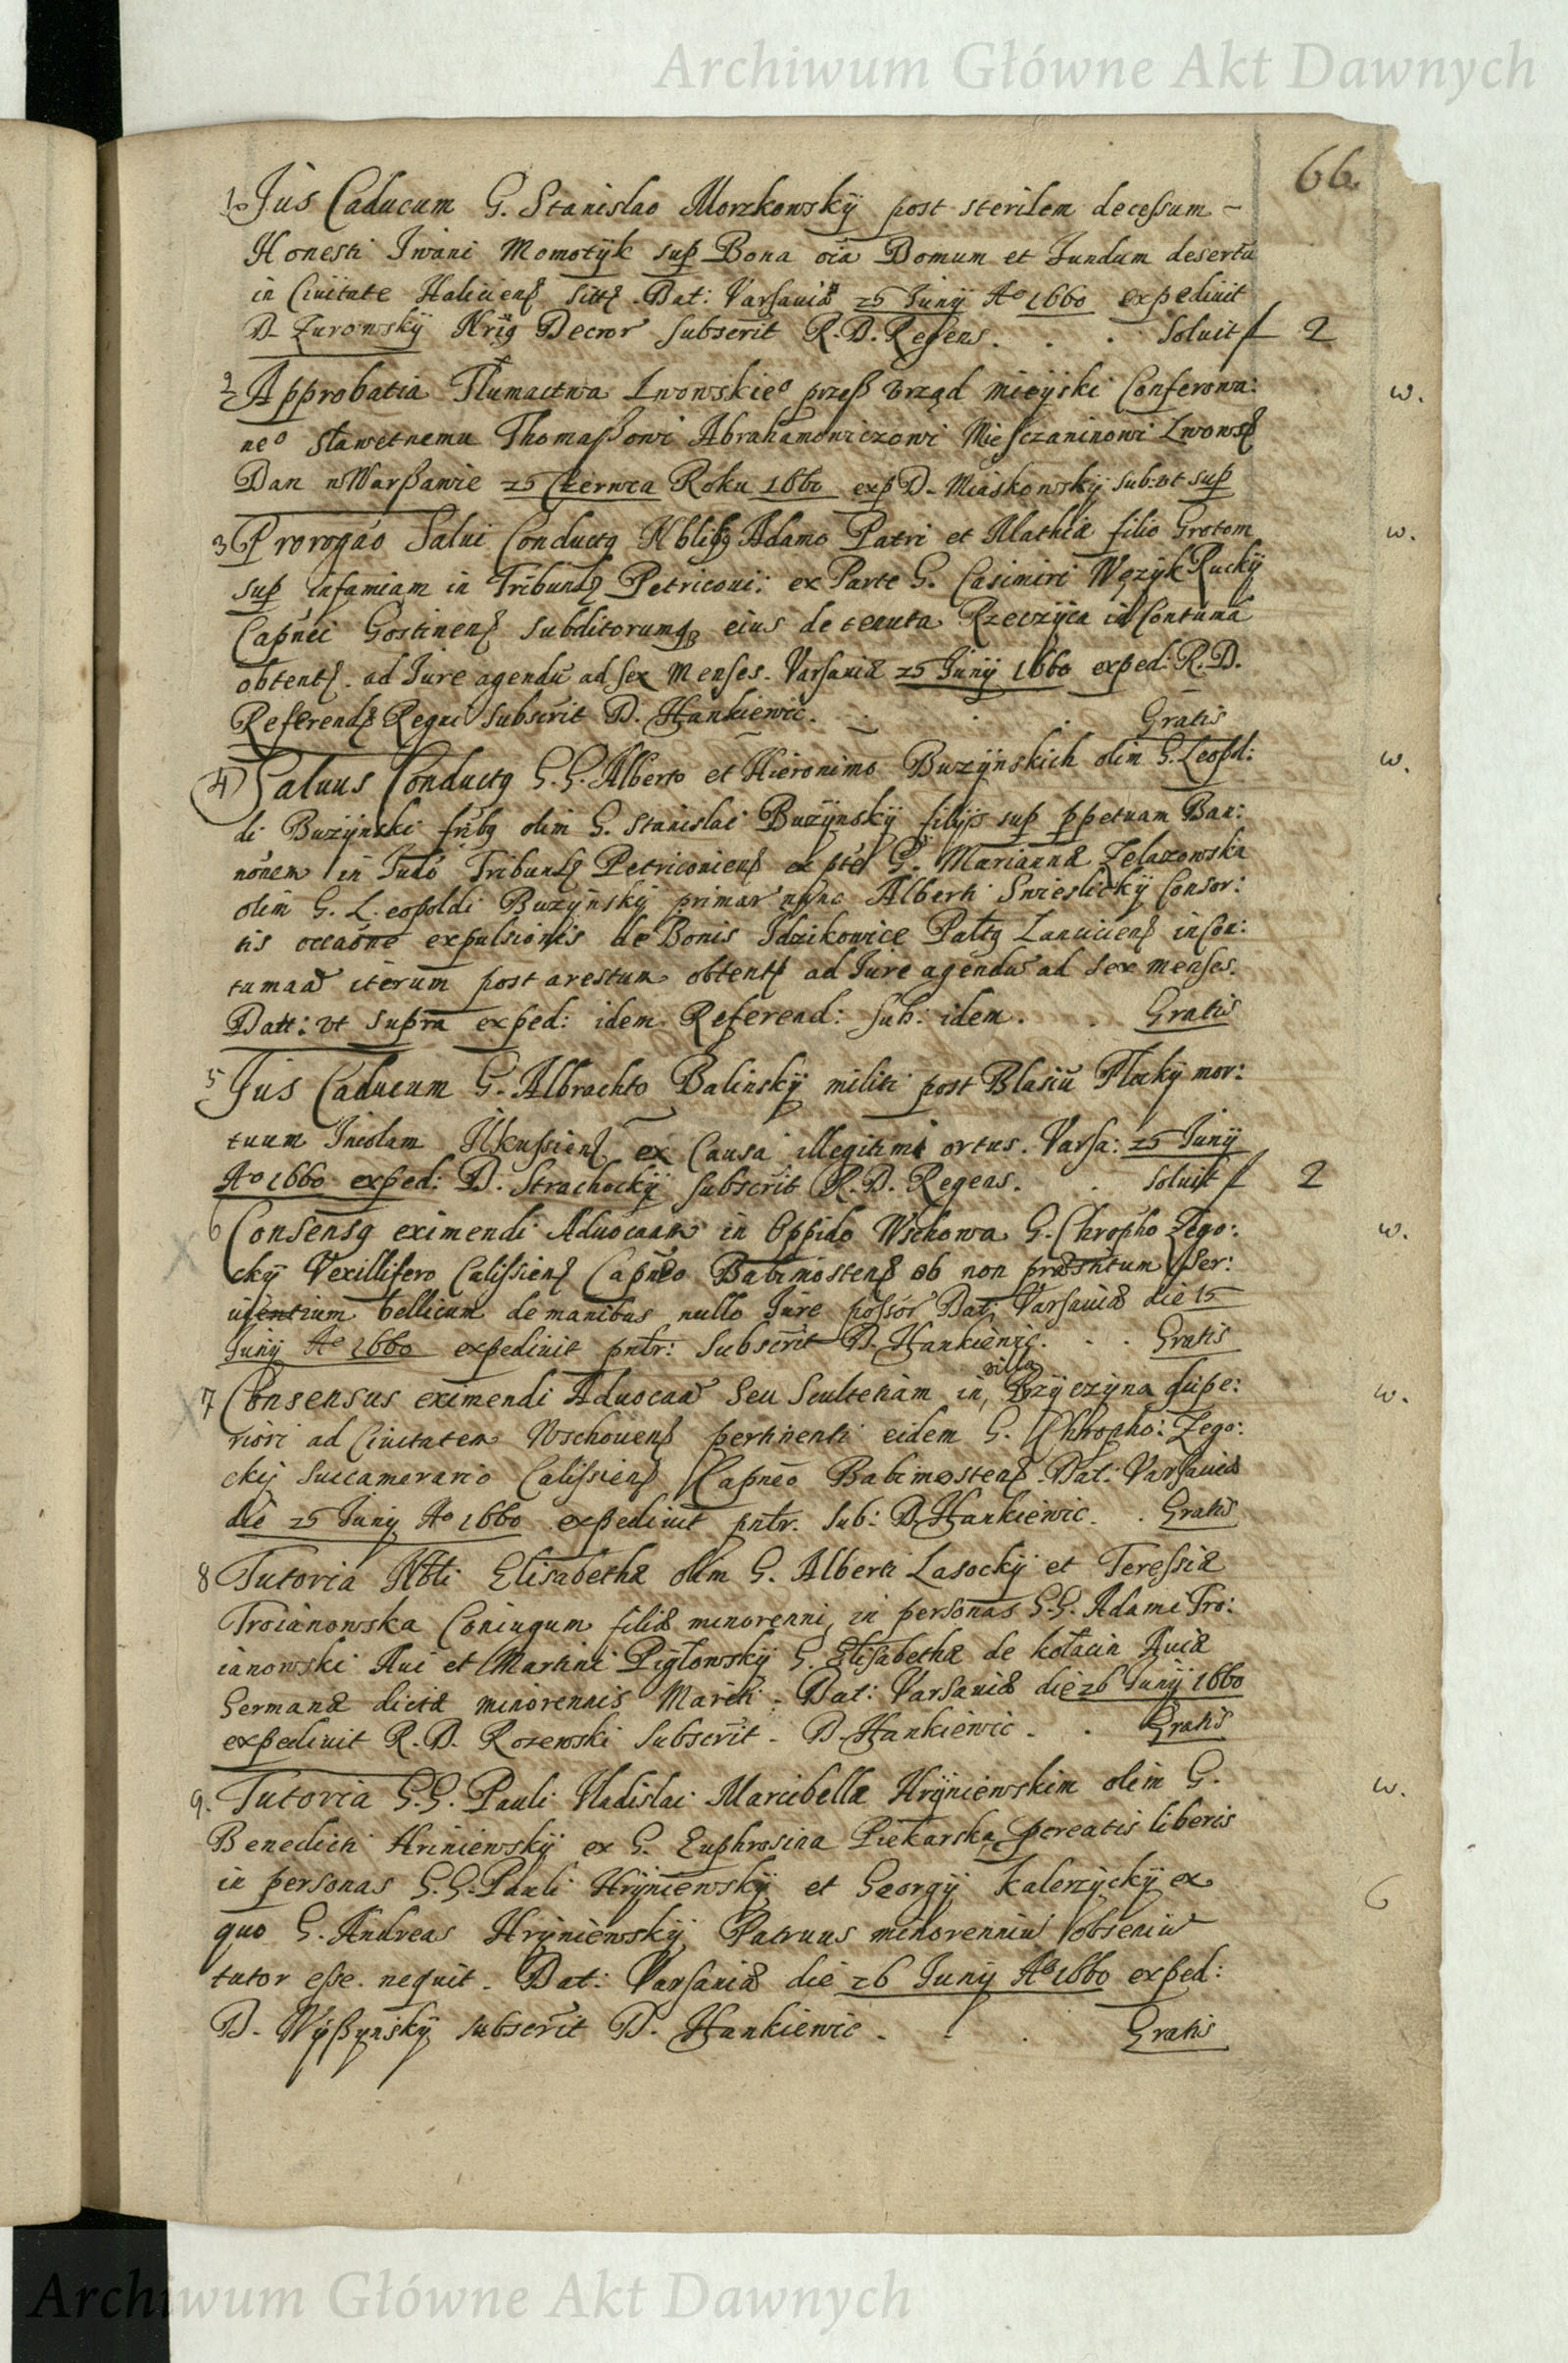 Archiwum Główne Akt Dawnych
66.
1. Jus Caducum G. Stanislao Morzkowskÿ post sterilem decessum –
Honesti Iwani Momotÿk sup Bona oia Domum et Fundum desertu
in Ciuitate Haliciens sitts. Dat: Varsauiæ 25 Junÿ Ao 1660 expediuit
D. Zurowskÿ Nrig Decror subscrit R. D. Regens. . . soluit f 2
2 Approbatia Tlumactwa Lwowskieo przeß vrząd mieÿski Conferowa: w.
neo sławetnemu Thomaßowi Abrahamowiczowi Miesczaninowi Lwows
Dan w Warßawie 25 Czerwca Roku 1660 exp D. Miaskowskÿ sub: vt sup
3 Prorogao Salui Conductq Nblibq Adamo Patri et Mathiæ filio Grotom w.
sup infamiam in Tribunls Petricoui: ex Parte G. Casimiri Wężyk Ruckÿ
Capnei Gostinens subditorumq eius de tenuta Rzeczÿca in Contuma
obtents. ad Jure agendu ad sex Menses. Varsauiæ 25 Junÿ 1660 exped: R. D.
Referends Regni subscrit D. Hankiewic. . . . Gratis
4 Saluus Conductq G. G. Alberto et Hieronimo Buzÿnskich olim G. Leopol: w.
di Buzÿnski fribq olim G. Stanislai Buzÿnskÿ filijs sup ppetuam Ban:
nonem in Judo Tribunls Petriconiens ex pte G. Mariannæ Zelazowska
olim G. Leopoldi Buzÿnskÿ primar nunc Alberti Swieslickÿ Consor:
tis occaone expulsionis de Bonis Idzikowice Paltq Lanciciens in Con:
tumaa iterum post arestum obtents ad Jure agendu ad sex menses.
Datt: vt supra exped: idem Referend: sub: idem. . Gratis
5 Jus Caducum G. Albrachto Balinskÿ militi post Blasiu Fluckÿ mor:
tuum Incolam Ilkussiens ex Causa illegitimi ortus. Varsa: 25 Junÿ
Ao 1660 exped: D. Strachockÿ subscrit R. D. Regens. . soluit f 2
6 Consensq eximendi Aduocaam in Oppido Wschowa G. Chropho Zego: w.
ckÿ Vexillifero Calissiens Capneo Babimostens ob non præsntum Ser:
uientium bellicum de manibus nullo Jure possor. Dat: Varsauiæ die 15
Junÿ Ao 1660 expediuit pntr: subscrit D. Hankiewic. . . Gratis
7 Consensus eximendi Aduocaa seu Scultetiam in villa Przÿczÿna supe: w.
riori ad Ciuitatem Wschouens pertinenti eidem G. Chropho: Zego:
ckij Succamerario Calissiens Capneo Babimostens. Dat: Varsauiæ
die 25 Junÿ Ao 1660 expediuit pntr. sub: D. Hankiewic. . Gratis
8 Tutoria Nbli Elisabethæ olim G. Alberti Lasockÿ et Teressiæ
Troianowska Coniugum filiæ minorenni, in personas G. G. Adami Tro:
ianowski Aui et Martini Pigłowskÿ G. Elisabethæ de kołacin Auiæ
Germanæ dictæ minorennis Mariti. Dat: Varsauiæ die 26 Junÿ 1660
expediuit R. D. Rozewski subscrit. D. Hankiewic . . Gratis
9. Tutoria G. G. Pauli Vladislai Maricibellæ Hrÿniewskim olim G. w.
Benedicti Hriniewskÿ ex G. Euphrosina Piekarska pcreatis liberis
in personas G. G. Pauli Hrÿniewskÿ et Georgÿ Kalerzÿckÿ ex
quo G. Andreas Hrÿniewskÿ Patruus minorenniu obseniu
tutor esse nequit. Dat: Varsauiæ die 26 Junÿ Ao 1660 exped:
D. Wÿßÿnskÿ subscrit D. Hankiewic . . . Gratis
Archiwum Główne Akt Dawnych